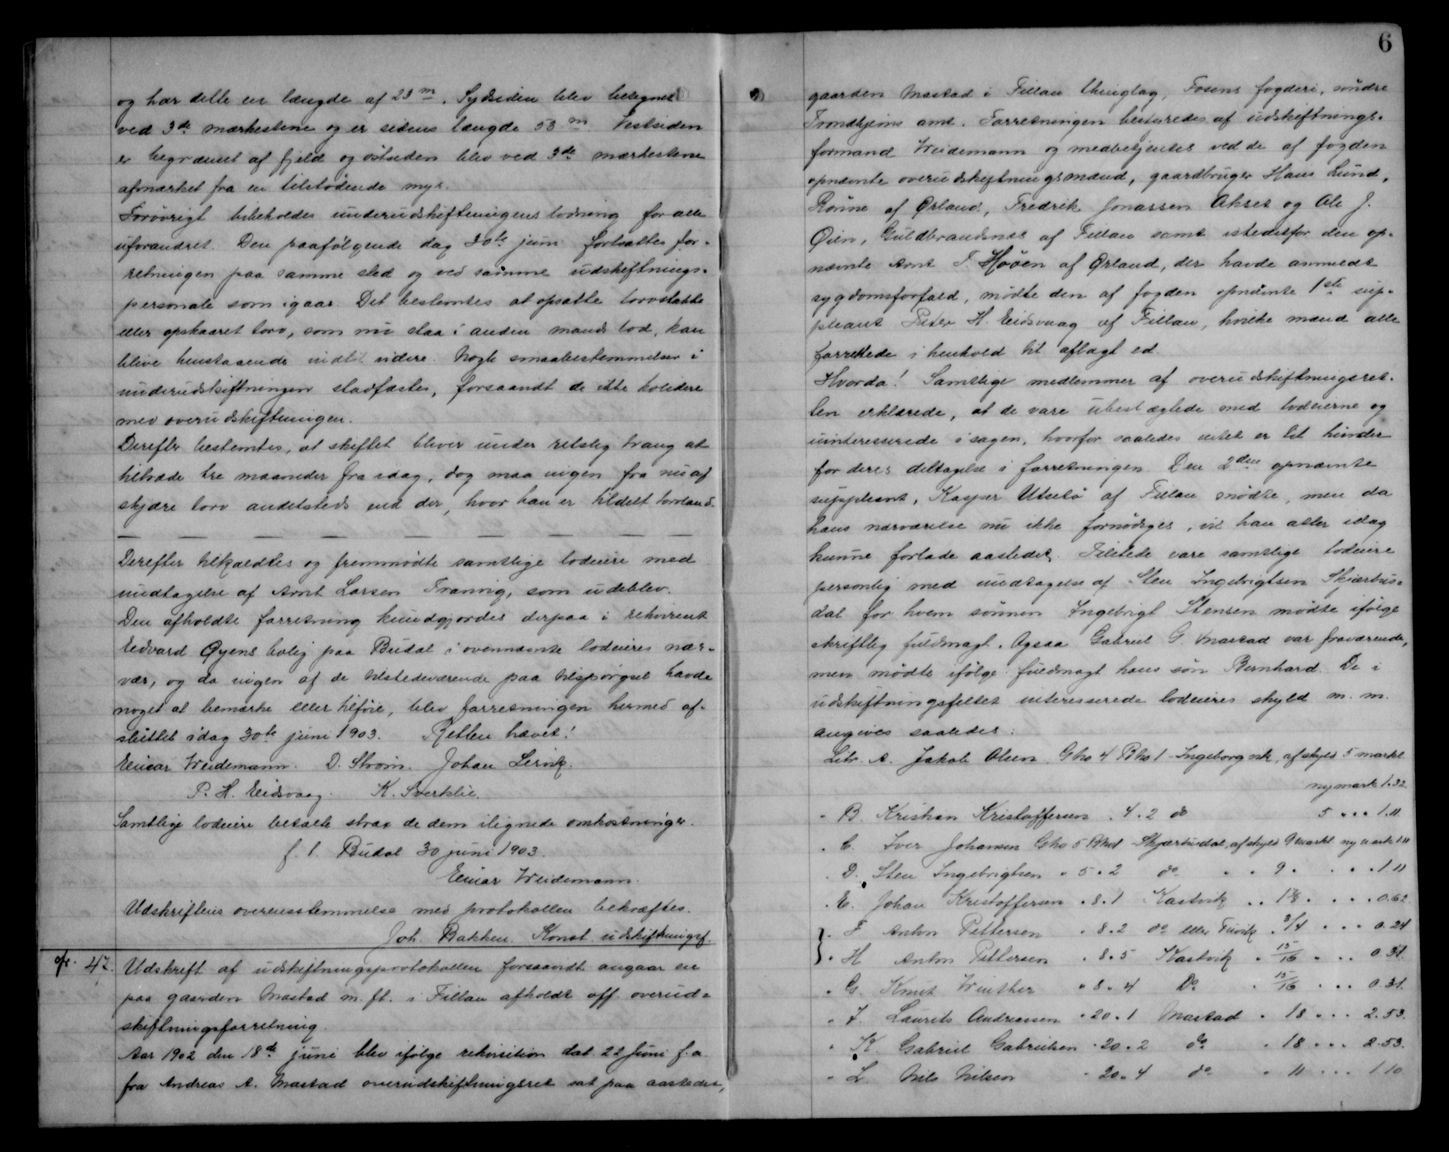 og har dette en længde af 23 m. Sydsiden blev betegnet
ved 3de mærkestene og er sidens længde 53 m. Vestsiden
er begrænset af fjeld og østsiden blev ved 3de mærkestene
afmærket fra en tilstødende myr.
Forøvrigt bibeholdes underudskiftningens lodning for alle
uforandret. Den paafølgende dag 30te juni fortsattes for-
retningen paa samme sted og ved samme udskiftnings-
personale som igaar. Det bestemtes at opsatte torvstakke
eller opskaaret torv, som nu staa i anden mands lod, kan
blive henstaaende indtil videre. Nogle smaabestemmelser i
underudskiftningen stadfæstes, forsaavidt de ikke kolidere
med overudskiftningen.
Derefter bestemtes, at skiftet bliver under retslig tvang at
tiltræde tre maaneder fra idag, dog maa ingen fra nu af
skjære torv andetsteds end der, hvor han er tildelt torvland.
Derefter tilkaldtes og fremmødte samtlige lodeiere med
undtagelse af Arnt Larsen Traning, som udeblev.
Den afholdte forretning kundgjordes derpaa i rekvirent
Edvard Øyens bolig paa Budal i ovennævnte lodeieres nær-
vær, og da ingen af de tilstedeværende paa tilspørgsel havde
noget at bemærke eller tilføie, blev forretningen hermed af-
sluttet idag 30te juni 1903. Retten hævet!
Einar Weidemann. D. Strøm. Johan Lervik.
P. H. Eidsvaag. K. Sverkslie.
Samtlige lodeiere betalte strax de dem ilignede omkostninger.
f. t. Budal 30 juni 1903.
Einar Weidemann.
Udskriftens overensstemmelse med protokollen bekræftes.
Joh. Bakken Konst. udskiftningsf.
47. Udskrift af udskiftningsprotokollen forsaavidt angaar en
paa gaarden Mastad m. fl. i Fillan afholdt off. overud-
skiftningsforretning.
Aar 1902 den 18de juni blev ifølge rekvisition dat. 22 Juni f. a.
fra Andreas A. Mastad overudskiftningsret sat paa aastedet,
6
gaarden Mastad i Fillan thinglag, Fosens fogderi, søndre
Trondhjems amt. Forretningen bestyredes af udskiftnings-
formand Weidemann og medbetjentes ved de af fogden
opnævnte overudskiftningsmænd, gaardbruger Hans Lund,
Rønne af Ørland, Fredrik Jonassen Akset og Ole J.
Øien, Guldbrandsnes af Fillan samt istedetfor den op-
nævnte Arnt T. Hoøen af Ørland, der havde anmeldt
sygdomsforfald, mødte den af fogden opnævnte 1ste sup-
pleant Peder H. Eidsvaag af Fillan, hvilke mænd alle
forrettede i henhold til aflagt ed.
Hvorda! Samtlige medlemmer af overudskiftningsret-
ten erklærede, at de vare ubeslægtede med lodeierne og
uinteresserede i sagen, hvorfor saaledes intet er til hinder
for deres deltagelse i forretningen. Den 2den opnævnte
suppleant, Kasper Utsetø af Fillan mødte, men da
hans nærværelse nu ikke fornødiges, vil han atter idag
kunne forlade aastedet. Tilstede vare samtlige lodeiere
personlig med undtagelse af Sten Ingebrigtsen Skjærbus-
dal for hvem sønnen Ingebrigt Stensen mødte ifølge
skriftlig fuldmagt. Ogsaa Gabriel G. Mastad var fraværende,
men mødte ifølge fuldmagt hans søn Bernhard. De i
udskiftningsfeltet interesserede lodeieres skyld m. m.
angives saaledes:
Litr. A. Jakob Olsen Gno 4 Bno 1 Ingeborgvik, af skyld 5 markl.
ny mark 1.32
" B. Kristian Kristoffersen " 4 " 2 do 5 " " " 1.11
" C. Iver Johansen Gno 5 Bno 1 Skjærbusdal, af skyld 9 markl ny mark 1.11
" D. Sten Ingebrigtsen " 5 " 2 do " " 9 " " " 1.11
" E. Johan Kristoffersen " 8 " 1 Kastvik " " 1 7/8 " " " 0.62
" F. Anton Pettersen " 8 " 2 do eller Furvik " 3/4 " " " 0.24
" H. Anton Pettersen " 8 " 5 Kastvik " 15/16 " " " 0.31.
" G. Knut Winther " 8 " 4 Do " 15/16 " " " 0.31.
" J. Laurits Andreasen " 20 " 1 Mastad " 18 " " " 2.53.
" K. Gabriel Gabrielsen " 20 " 2 do " 18 " " " 2.53.
" L. Nils Nilsen " 20 " 4 do " 11 " " " 1.10